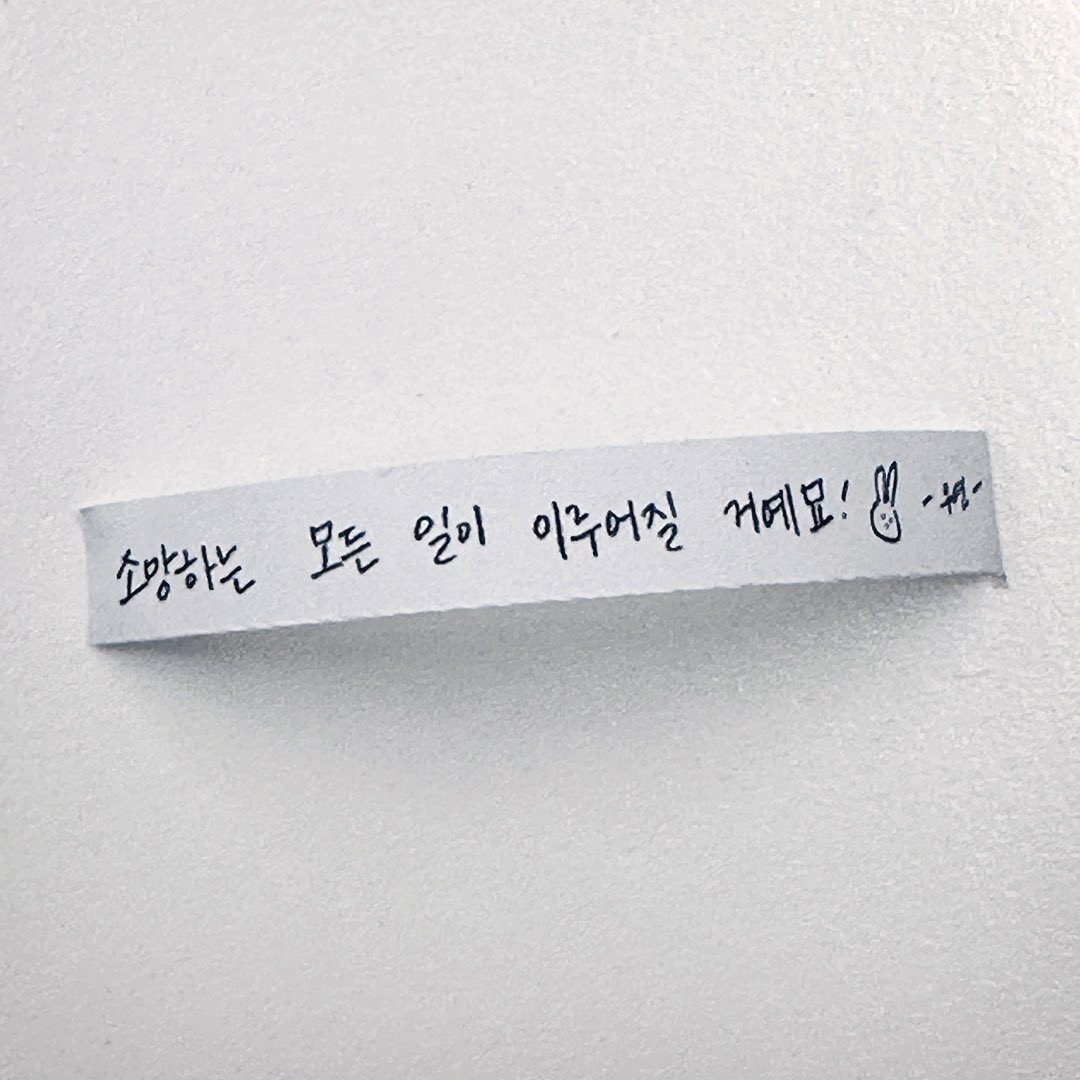 소망하는 모든 일이 이루어질 거예요!